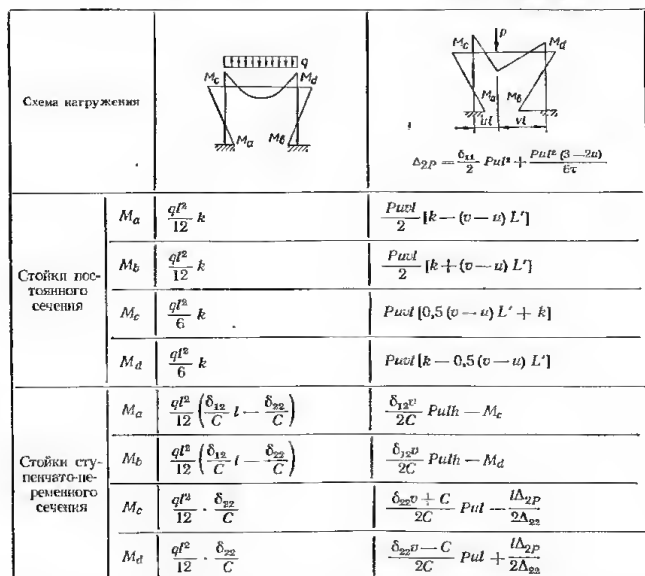 Схема нагружения
q
M_c
M_d
M_a
M_b
P
M_c
M_d
M_a
M_b
ul
vl
Δ_{2P} = \frac{δ_{11}}{2} Pul² + \frac{Pul² (3 — 2u)}{6τ}
Стойки пос-
тоянного
сечения
M_a \frac{ql²}{12} k \frac{Puvl}{2} [k — (v — u) L′]
M_b \frac{ql²}{12} k \frac{Puvl}{2} [k + (v — u) L′]
M_c \frac{ql²}{6} k Puvl [0,5 (v — u) L′ + k]
M_d \frac{ql²}{6} k Puvl [k — 0,5 (v — u) L′]
Стойки сту-
пенчато-пе-
ременного
сечения
M_a \frac{ql²}{12} (\frac{δ_{12}}{C} l — \frac{δ_{22}}{C}) \frac{δ_{12}v}{2C} Pulh — M_c
M_b \frac{ql²}{12} (\frac{δ_{12}}{C} l — \frac{δ_{22}}{C}) \frac{δ_{12}v}{2C} Pulh — M_d
M_c \frac{ql²}{12} · \frac{δ_{22}}{C} \frac{δ_{22}v + C}{2C} Pul — \frac{lΔ_{2P}}{2Δ_{22}}
M_d \frac{ql²}{12} · \frac{δ_{22}}{C} \frac{δ_{22}v — C}{2C} Pul + \frac{lΔ_{2P}}{2Δ_{22}}